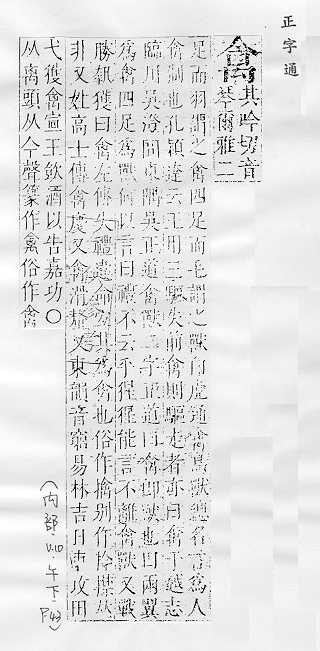 正字通
禽 其吟切音
琴爾雅二
足而羽謂之禽四足而毛謂之獸白虎通禽鳥獸總名言為人
禽制也孔穎達云王用三驅失前禽則驅走者亦曰禽于越志
臨川吳澥問虞吳正道禽獸二字正道曰禽即獸也曰兩翼
為禽四足為獸何以言曰禮不云乎猩猩能言不離禽獸又戰
勝執獲曰禽左傳失禮違命宜其為禽也俗作擒別作捦
非又姓高士傳禽慶又禽滑釐又東韻音窮易林吉日攻田
弋獲禽宣王飲酒以告嘉功○
从离頭从今聲篆作禽俗作
(內部 V.10 午下
P.43)